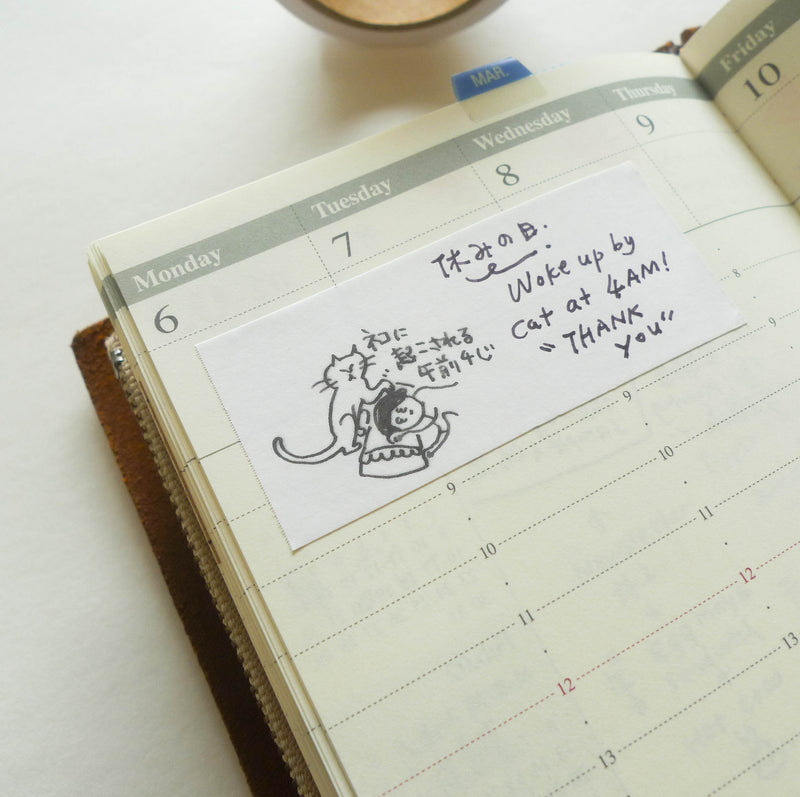 MAR.
Monday
Tuesday
Wednesday
Thursday
Friday
6
7
8
9
10
休みの日.
Woke up by
cat at 4AM!
"THANK
YOU"
ネコに
起こされる
午前4じ
8
9
9
9
10
10
11
11
12
12
13
13